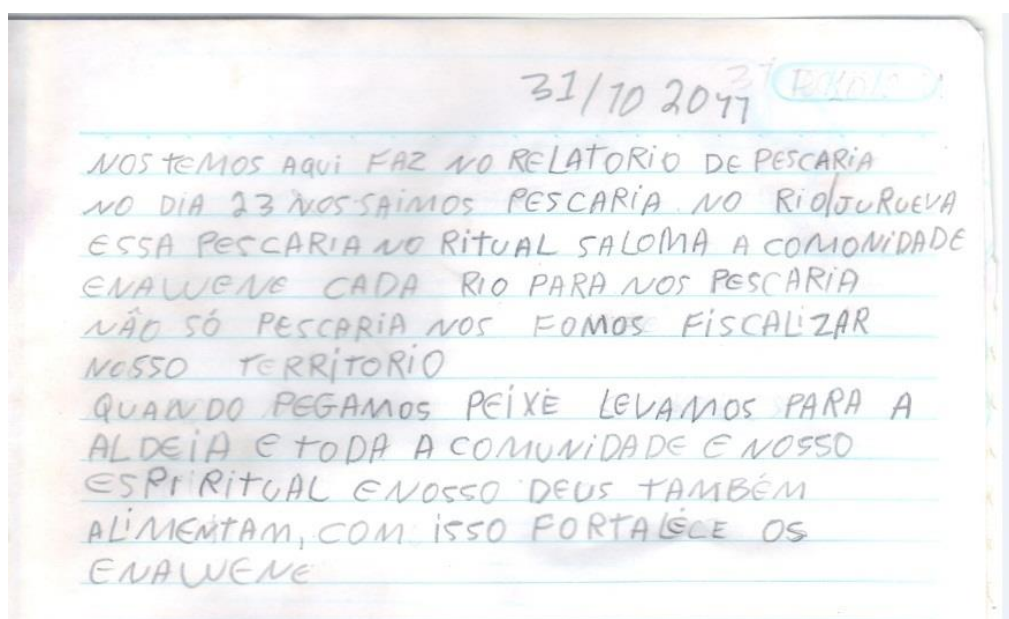 31/10 2011
NOS TEMOS AQUI FAZ NO RELATORIO DE PESCARIA
NO DIA 23 NOS SAIMOS PESCARIA NO RIO/JURUEVA
ESSA PESCARIA NO RITUAL SALOMA A COMONIDADE
ENAWENE CADA RIO PARA NOS PESCARIA
NÃO SÓ PESCARIA NOS FOMOS FISCALIZAR
NOSSO TERRITORIO
QUANDO PEGAMOS PEIXE LEVAMOS PARA A
ALDEIA E TODA A COMUNIDADE E NOSSO
ESPIRITUAL E NOSSO DEUS TAMBÉM
ALIMENTAM, COM ISSO FORTALECE OS
ENAWENE